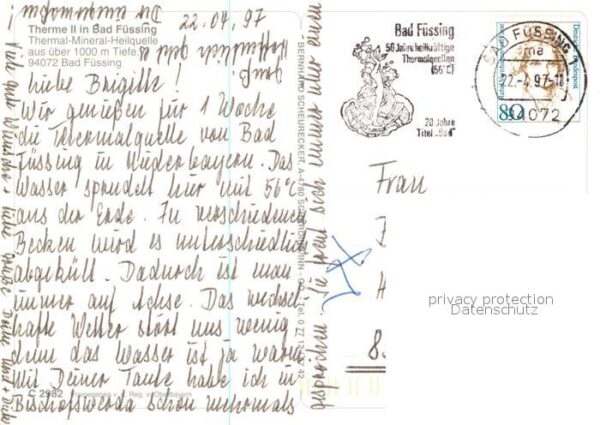 22.04.97
Therme II in Bad Füssing
Thermal-Mineral-Heilquelle
aus über 1000 m Tiefe.
94072 Bad Füssing
Liebe Brigitte!
Wir genießen für 1 Woche
die Thermalquelle von Bad
Füssing in Niederbayern. Das
Wasser sprudelt hier mit 56°C
aus der Erde. In verschiedenen
Becken wird es unterschiedlich
abgekühlt. Dadurch ist man
immer auf Achse. Das wechsel-
hafte Wetter stört uns wenig
denn das Wasser ist ja warm.
Mit Deiner Tante habe ich in
Bischofswerda schon mehrmals
gesprochen. Sie freut sich immer über einen
C 2982
BERNHARD SCHEURECKER, A-4780
Bad Füssing
50 Jahre heilkräftige
Thermalquellen
(56°C)
20 Jahre
Titel „Bad"
BAD FÜSSING 1
ma
22.-4.97-11
94072
Deutsche Bundespost
80
Frau
8.
privacy protection
Datenschutz